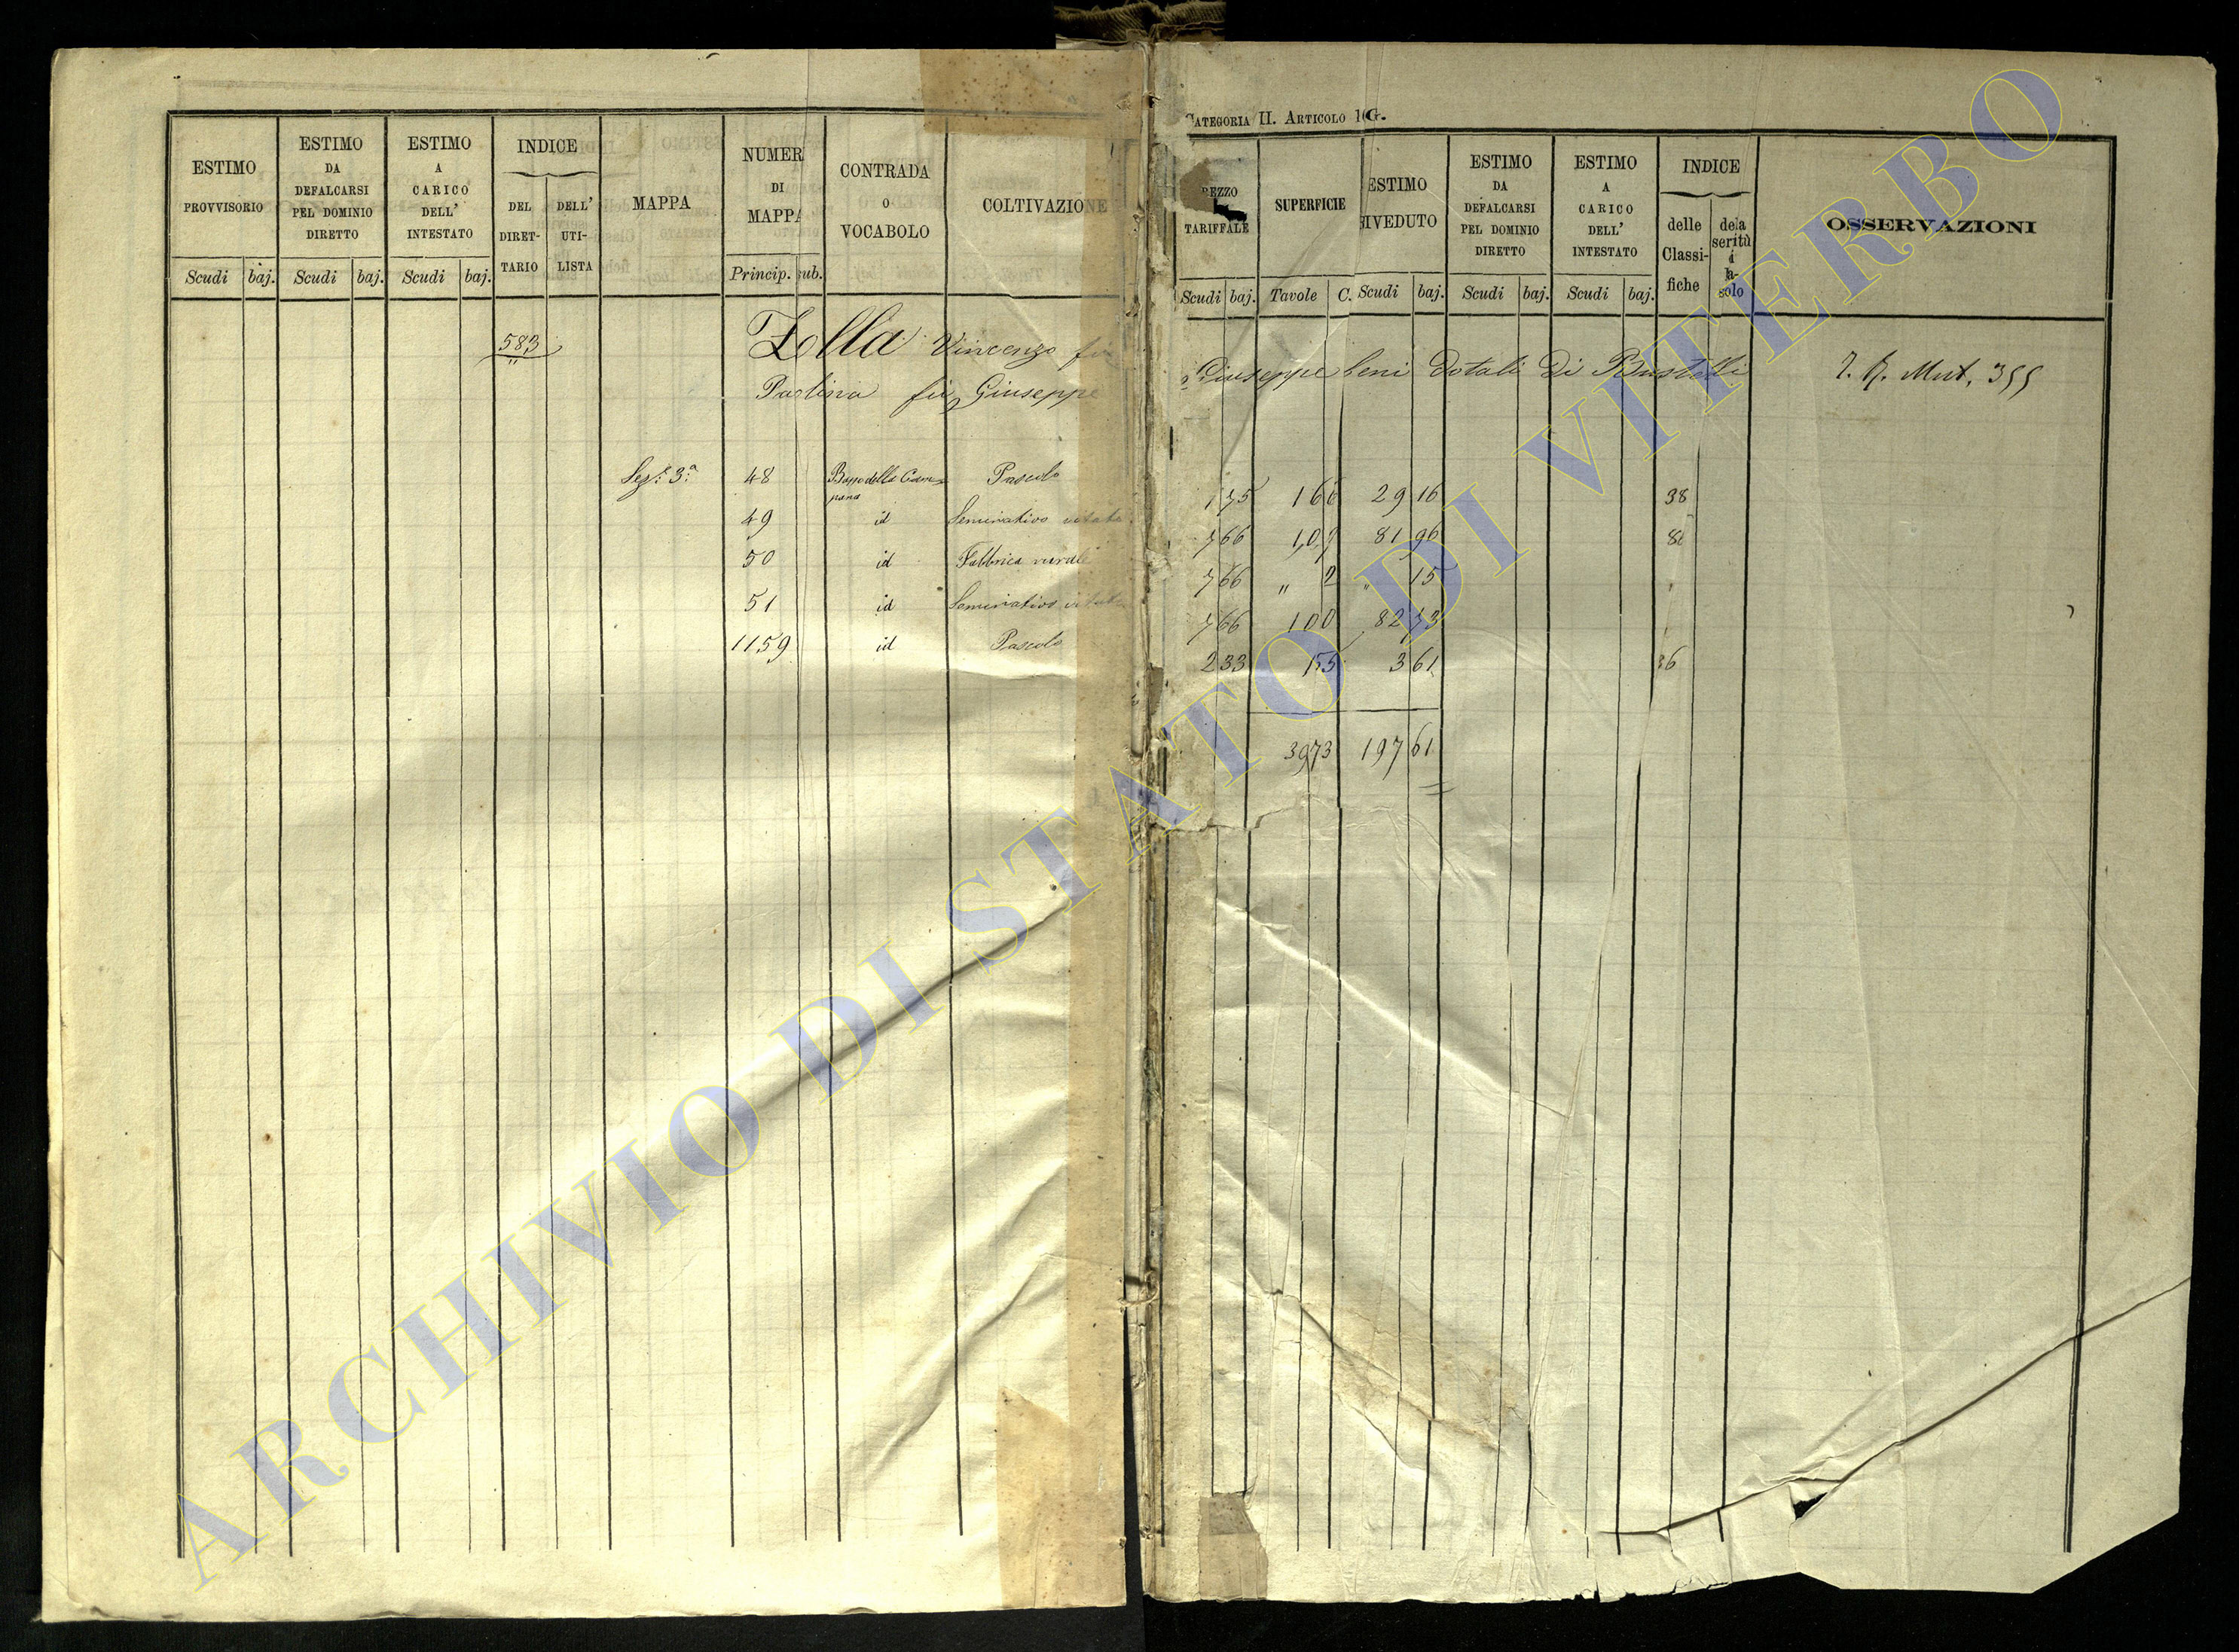 CATEGORIA II. ARTICOLO 1 G.
ESTIMO PROVVISORIO Scudi baj.
ESTIMO DA DEFALCARSI PEL DOMINIO DIRETTO Scudi baj.
ESTIMO A CARICO DELL' INTESTATO Scudi baj.
INDICE DEL DIRET-TARIO DELL' UTI-LISTA
MAPPA
NUMER DI MAPPA Princip. sub.
CONTRADA O VOCABOLO
COLTIVAZIONE
TARIFFALE Scudi baj.
SUPERFICIE Tavole C.
ESTIMO RIVEDUTO Scudi baj.
ESTIMO DA DEFALCARSI PEL DOMINIO DIRETTO Scudi baj.
ESTIMO A CARICO DELL' INTESTATO Scudi baj.
INDICE delle Classi-fiche
OSSERVAZIONI
583 Zella Vincenzo Giuseppe beni dotali di Mut. 355
Paolina fu Giuseppe
Sez.e 3.a 48 Pascolo 1 75 1 66 29 16 38
49 id Seminativo vitato 7 66 1,07 81 96
50 id Fabbrica rurale 7 66 " 2 " 15
51 id Seminativo vitato 7 66 1 00 82 73
1159 id Pascolo 2 33 155 3 61 36
3973 197 61
ARCHIVIO DI STATO DI VITERBO